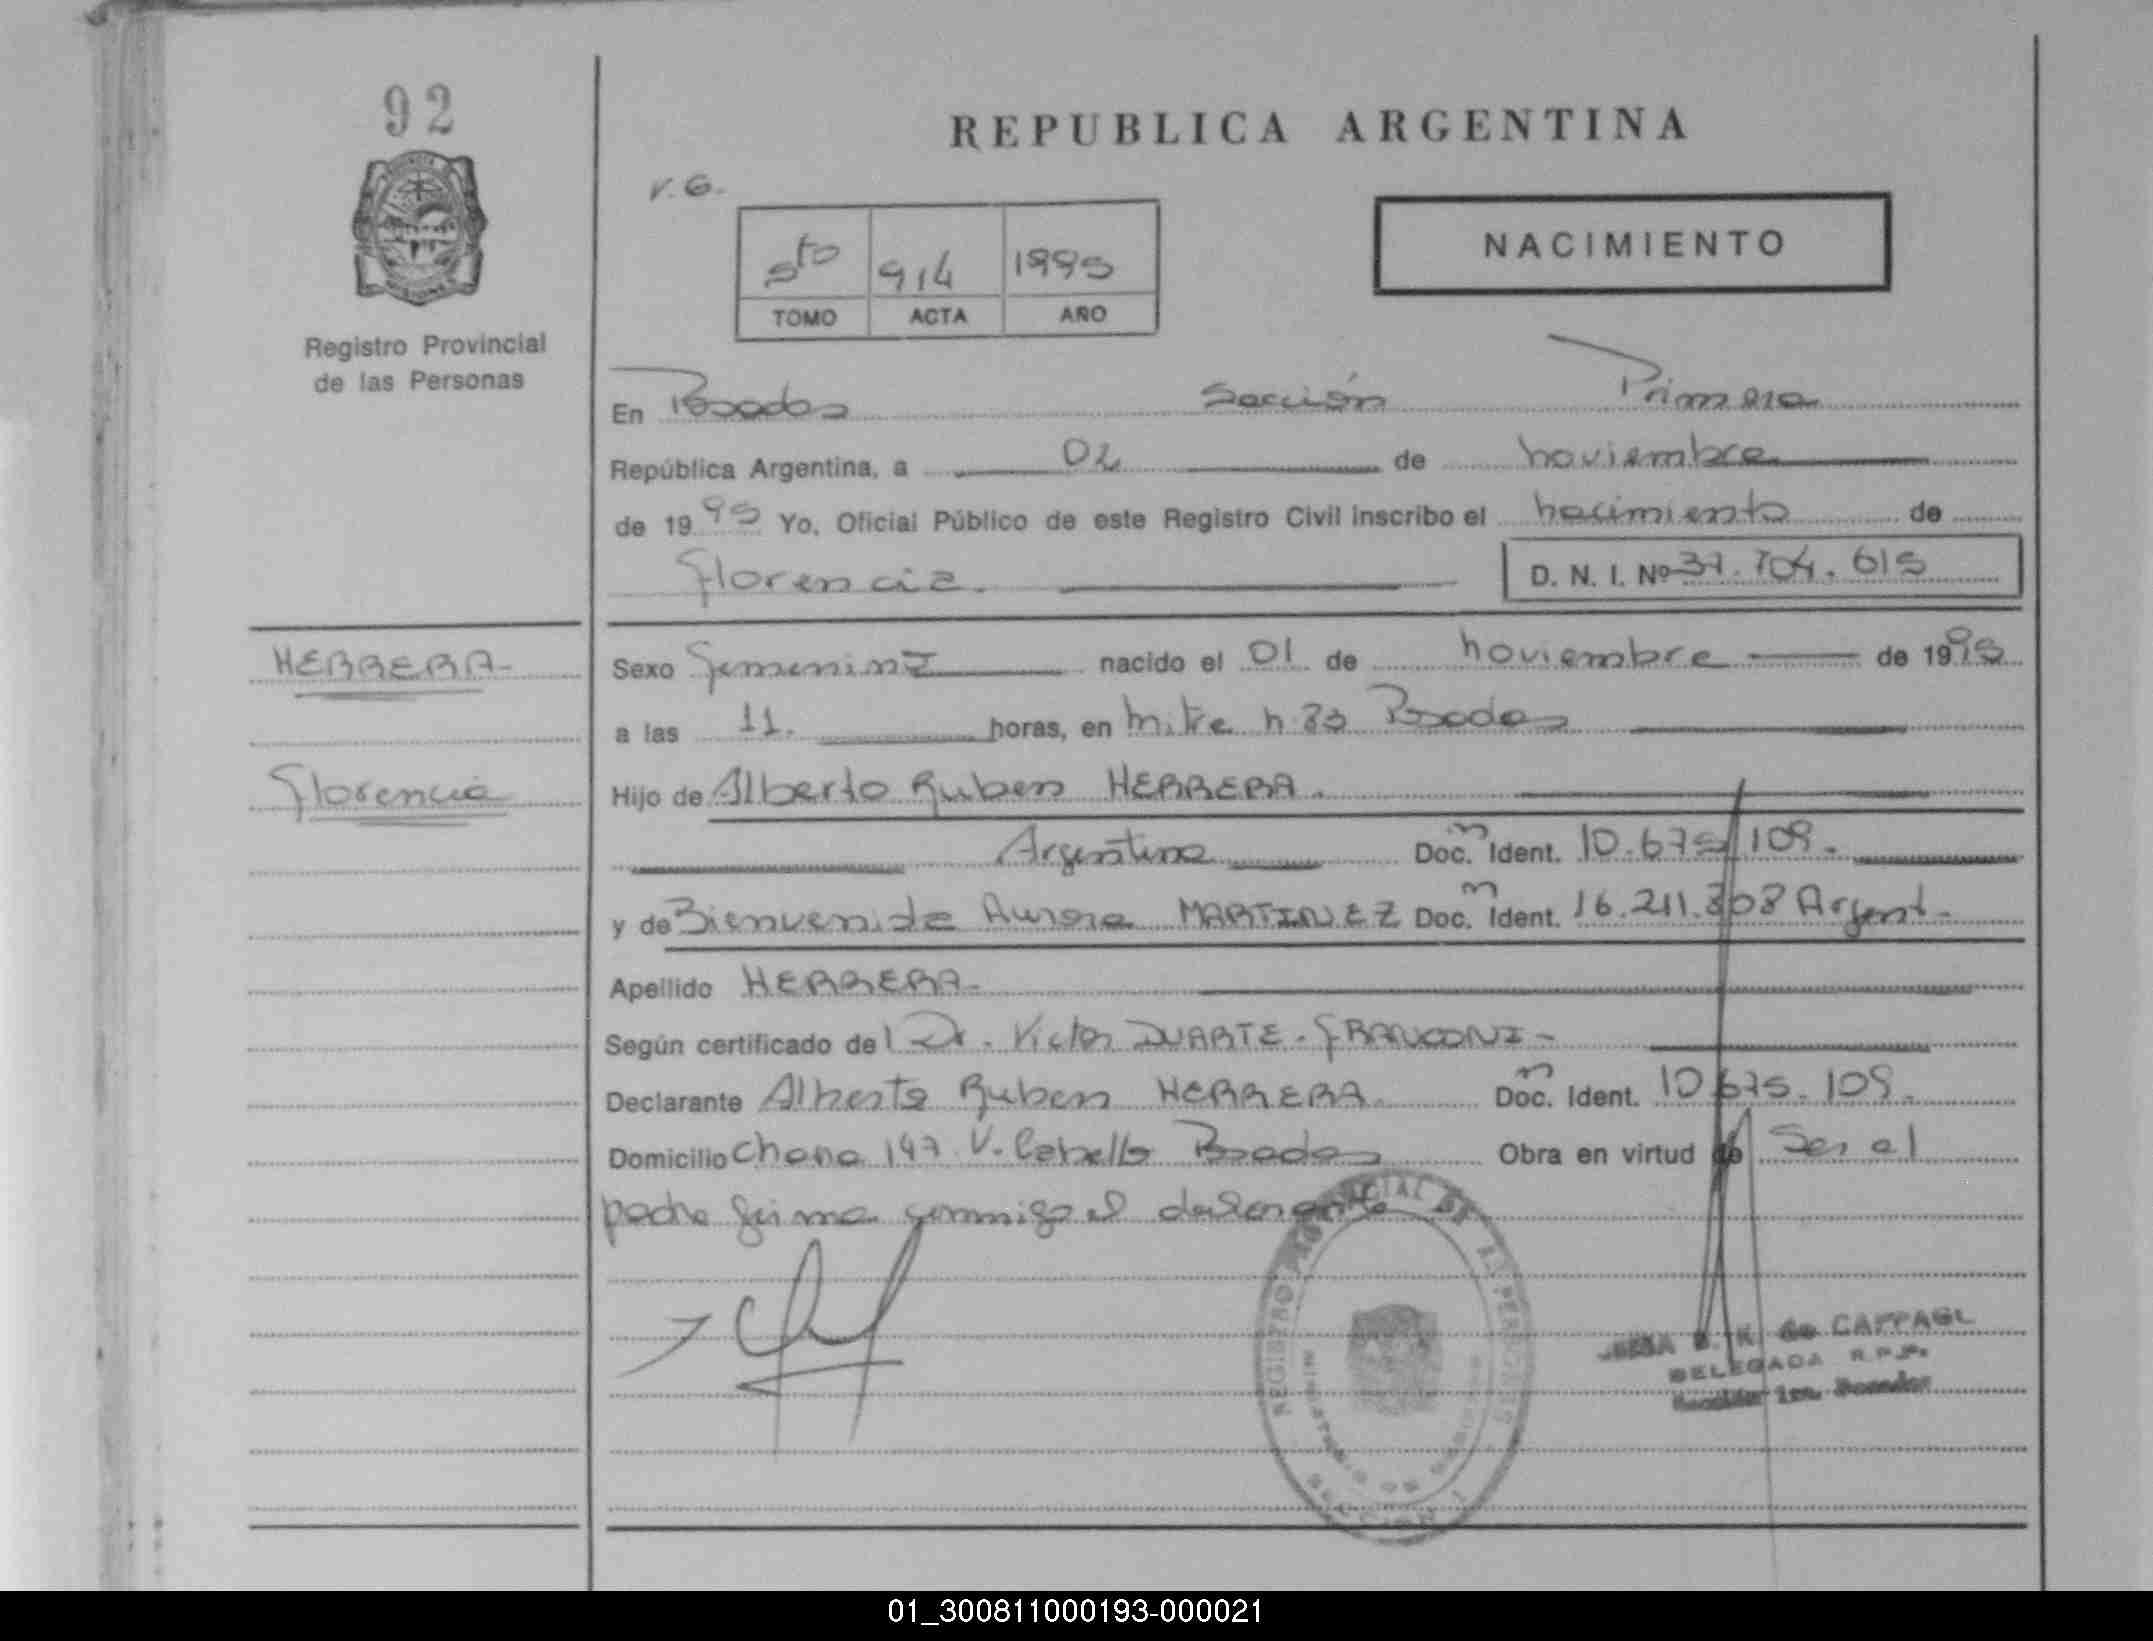 92
REPUBLICA ARGENTINA
V. G.
NACIMIENTO
5to 914 1995
TOMO ACTA AÑO
Registro Provincial
de las Personas
En Posadas Sección Primera
República Argentina, a 02 de noviembre
de 1995 Yo, Oficial Público de este Registro Civil inscribo el nacimiento de
Florencia. D. N. I. Nº 37.704.615
HERRERA-
Sexo Femenino nacido el 01 de noviembre de 1995
a las 11. horas, en Mitre n 83 Posadas
Florencia
Hijo de Alberto Ruben HERRERA.
Argentina Doc. m Ident. 10.675.109.
y de Bienvenida Aurora MARTINEZ Doc. m Ident. 16.211.808 Argent.
Apellido HERRERA-
Según certificado del Dr. Victor DUARTE-
Declarante Alberto Ruben HERRERA. Doc. m Ident. 10.675.109.
Domicilio 147 V. Cabello Posadas Obra en virtud de Ser el
padre firma conmigo el declarante
REGISTRO PROVINCIAL DE LAS PERSONAS
MINISTERIO DE GOBIERNO
SECCION 1
de CAPPAGL
DELEGADA R.P.P.
Sección 1ra. Posadas
01_300811000193-000021